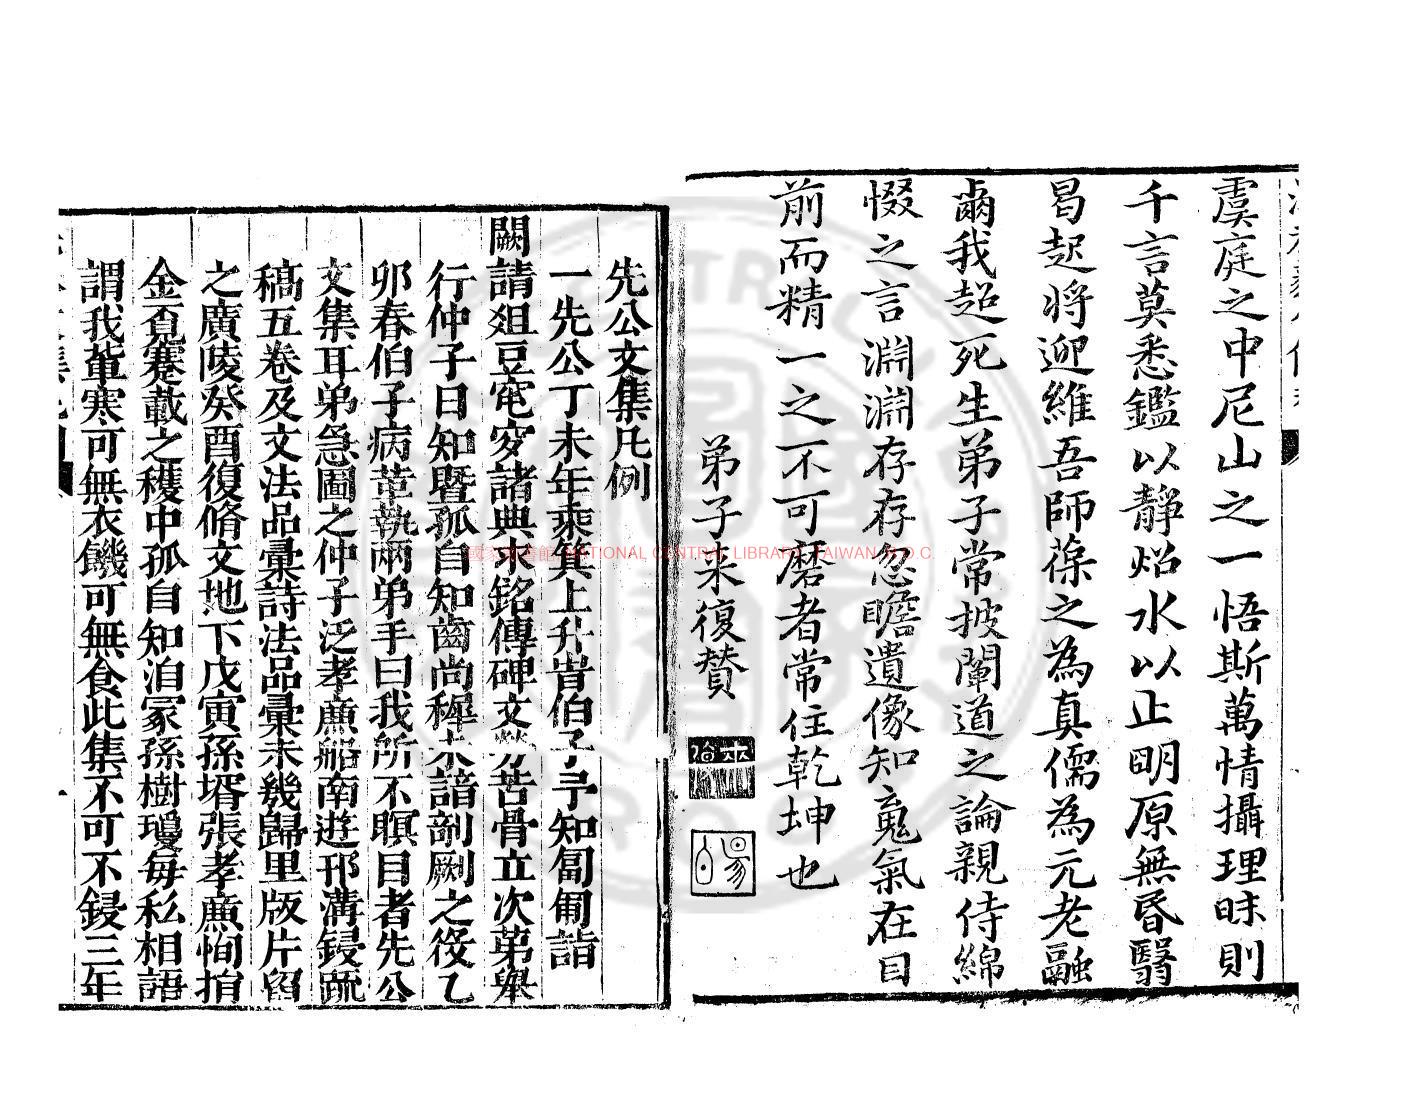 虞庭之中尼山之一悟斯萬情攝理昧則
千言莫悉鑑以靜炤水以止明原無昏翳
曷起將迎維吾師葆之為真儒為元老融
爾我超死生弟子常披闡道之論親侍綿
惙之言淵淵存存忽瞻遺像知寬氣在目
前而精一之不可磨者常住乾坤也
弟子来復贊
先公文集凡例
一先公丁未年乘箕上升旹伯子予知匍匐詣
闕請俎豆窀穸諸典求銘傳碑文於苦骨立次第舉
行仲子日知暨孤自知齒尚穉未諳剞劂之役乙
卯春伯子病革執兩弟手曰我所不瞑目者先公
文集耳弟急圖之仲子泛孝廉船南遊邗溝鋟疏
稿五卷及文法品彙詩法品彙未幾歸里版片留
之廣陵癸酉復脩文地下戊寅孫壻張孝廉恂捐
金覓蹇載之穫中孤自知洎冢孫樹瓊每私相語
謂我輩寒可無衣饑可無食此集不可不鋟三年
國家圖書館 NATIONAL CENTRAL LIBRARY, TAIWAN R.O.C.